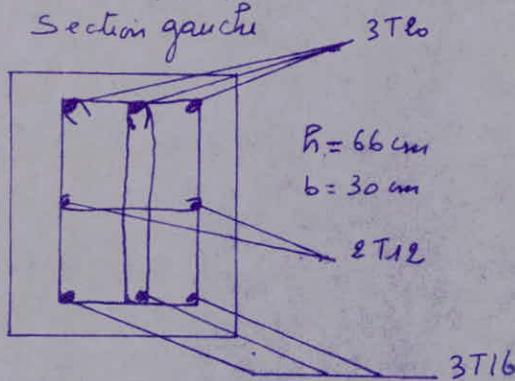 Section gauche
3T20
h = 66 cm
b = 30 cm
2T12
3T16